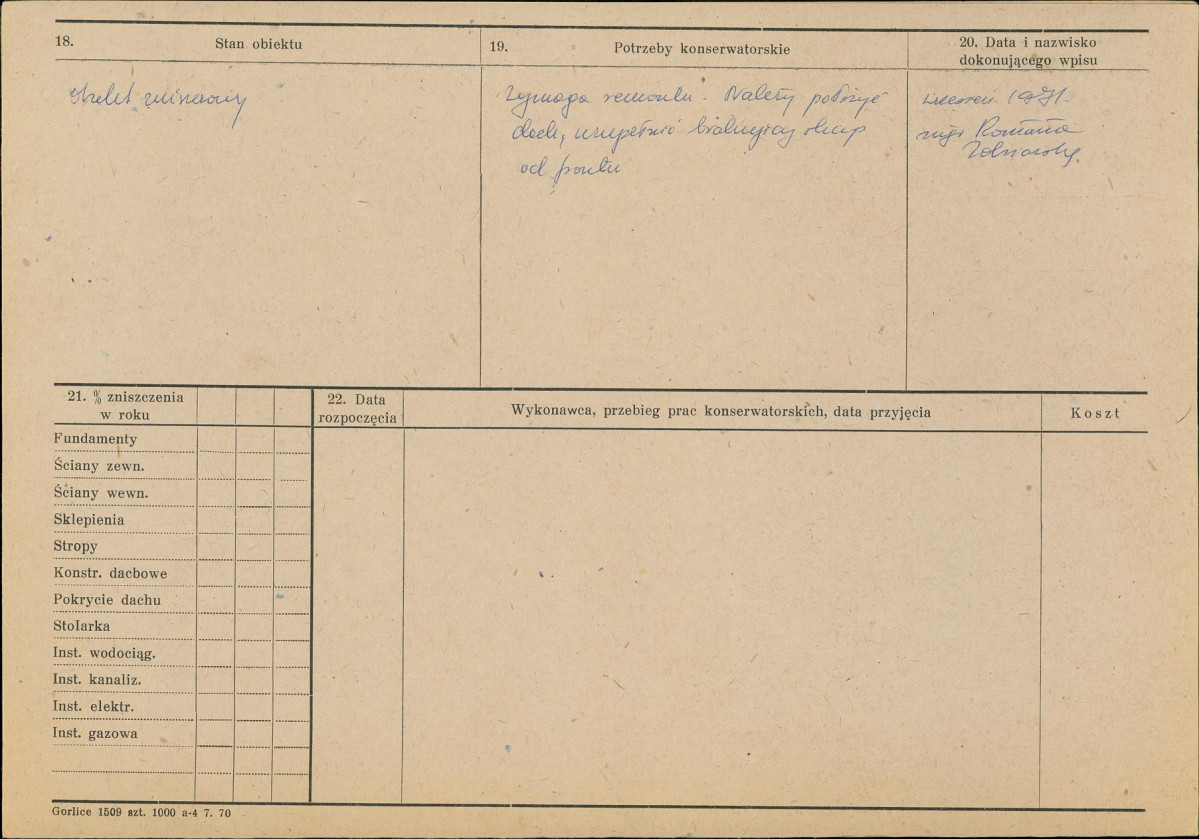 18. Stan obiektu
19. Potrzeby konserwatorskie
20. Data i nazwisko
dokonującego wpisu
Wymaga remontu. Należy położyć
dach, uzupełnić brakujący słup
od frontu
1971.
mgr Romana
21. % zniszczenia
w roku
22. Data
rozpoczęcia
Wykonawca, przebieg prac konserwatorskich, data przyjęcia
Koszt
Fundamenty
Ściany zewn.
Ściany wewn.
Sklepienia
Stropy
Konstr. dacbowe
Pokrycie dachu
Stolarka
Inst. wodociąg.
Inst. kanaliz.
Inst. elektr.
Inst. gazowa
Gorlice 1509 szt. 1000 a-4 7. 70